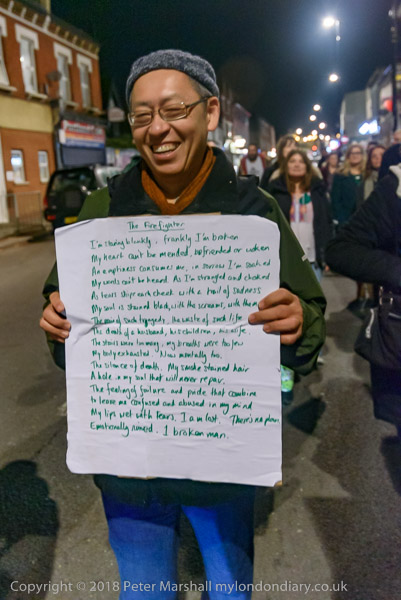 The Firefighter
I'm staring blankly, frankly I'm broken
My heart can't be mended, befriended or woken
An emptiness consumes me, in sorrow I'm soaked
My words can't be heard. As I'm strangled and choked
As tears slip each cheek with a trail of sadness
My soul is stained black, with the screams, with the
The such tragedy, the waste of such life
The death of a husband, his children, his wife.
The stairs were too many, my breaths were too few
My body exhausted. Now mentally too.
The silence of death. My smoke stained hair
A hole in my soul that will never repair.
The feeling of failure and pride that combine
to leave me confused and abused in my mind
My lips wet with tears. I am lost. There's no plan
Emotionally ruined. I broken man.
Copyright © 2018 Peter Marshall mylondondiary.co.uk